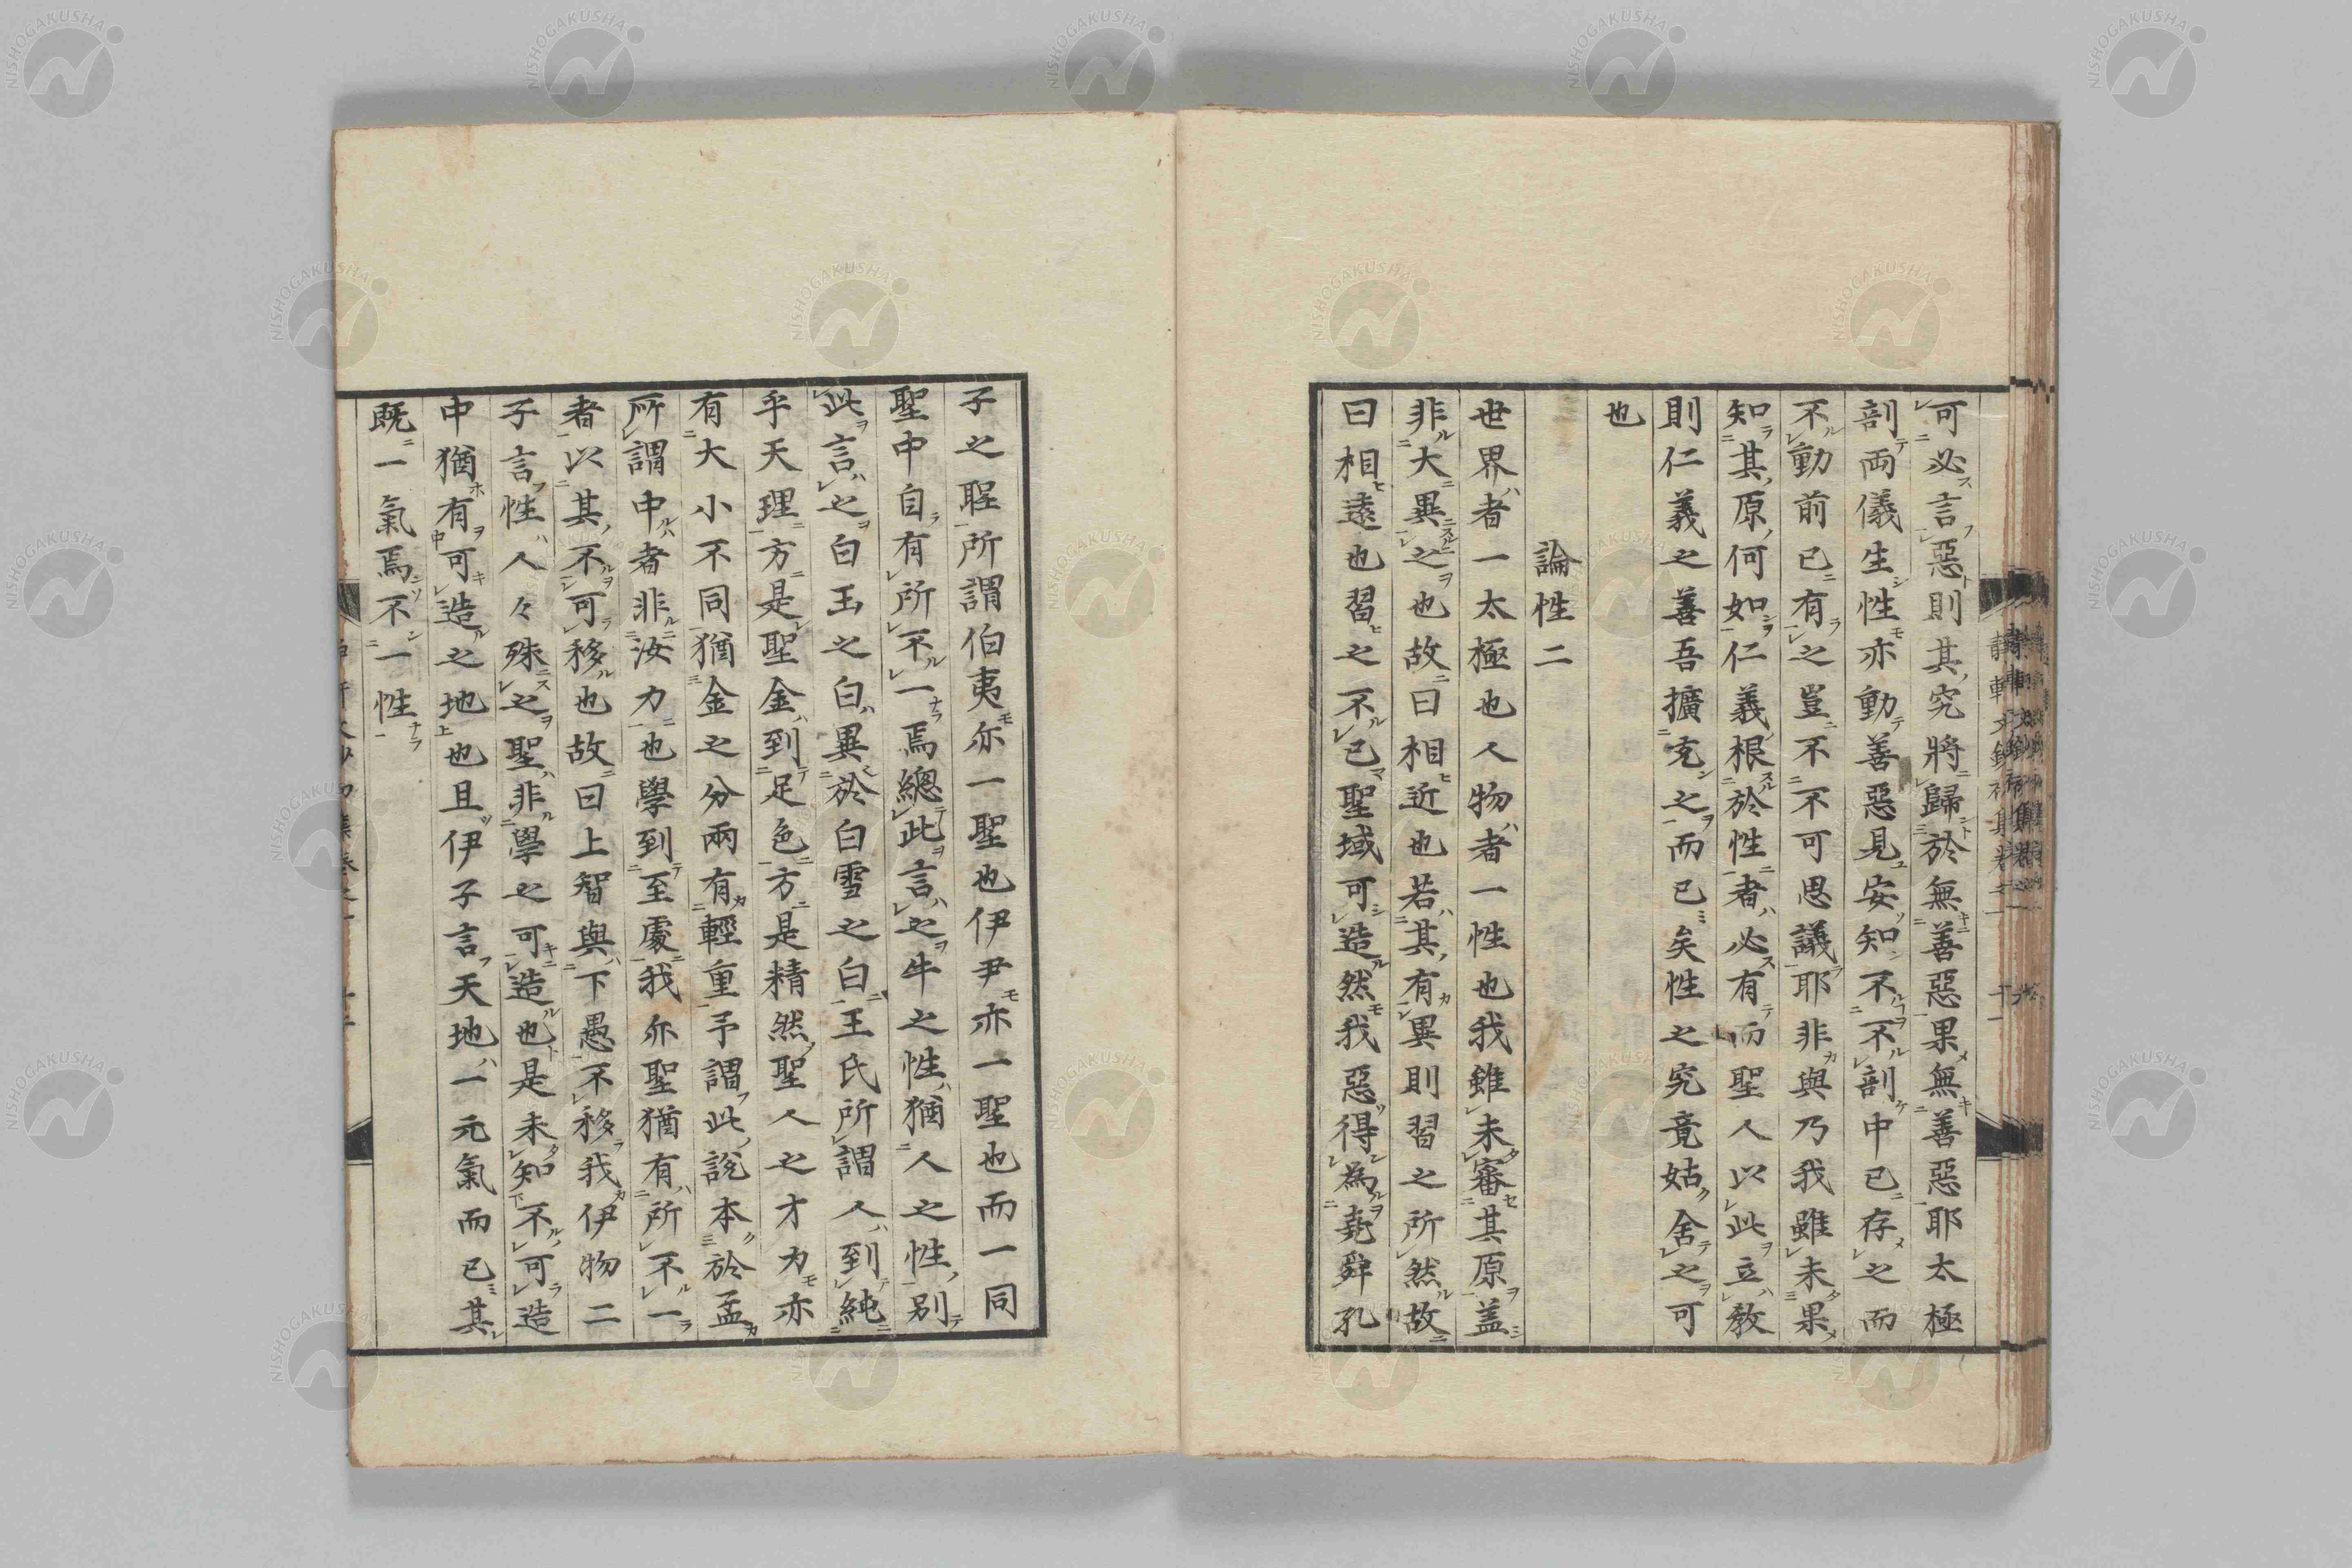 可必言惡則其究將歸於無善惡果無善惡耶太極
剖両儀生性亦動善惡見安知不不剖中已存之而
不動前已有之豈不不可思議耶非與乃我雖未果
知其原何如仁義根於性者必有而聖人以此立教
則仁義之善吾擴充之而已矣性之究竟姑舍之可
也
論性二
世界者一太極也人物者一性也我雖未審其原盖
非大異之也故曰相近也若其有異則習之所然故
曰相遠也習之不已聖域可造然我惡得為堯舜孔
子之聖所謂伯夷亦一聖也伊尹亦一聖也而一同
聖中自有所不一焉總此言之牛之性猶人之性別
此言之白玉之白異於白雪之白王氏所謂人到純
乎天理方是聖金到足色方是精然聖人之才力亦
有大小不同猶金之分兩有輕重予謂此說本於孟
所謂中者非汝力也學到至處我亦聖猶有所不一
者以其不可移也故曰上智與下愚不移我伊物二
子言性人々殊之聖非學之可造也是未知不可造
中猶有可造之地也且伊子言天地一元氣而已其
既一氣焉不一性
NISHOGAKUSHA